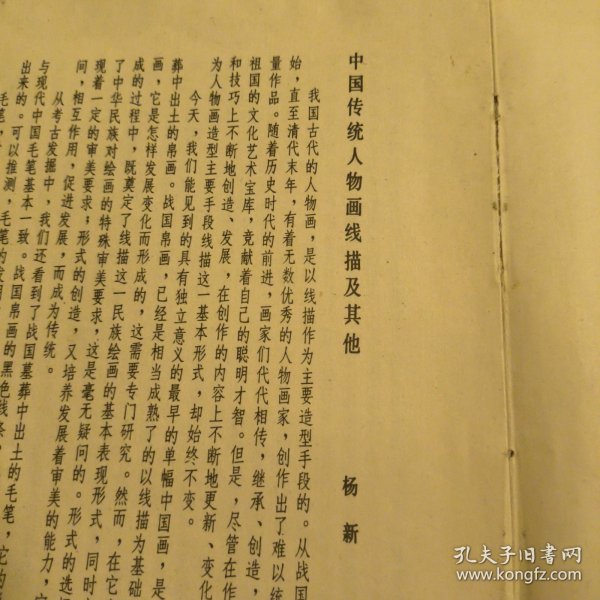 中国传统人物画线描及其他
杨新
我国古代的人物画，是以线描作为主要造型手段的。从战国
始，直至清代末年，有着无数优秀的人物画家，创作出了难以统
量作品。随着历史时代的前进，画家们代代相传，继承、创造，
祖国的文化艺术宝库，竞献着自己的聪明才智。但是，尽管在作
和技巧上不断地创造、发展，在创作的内容上不断地更新、变化
为人物画造型主要手段线描这一基本形式，却始终不变。
今天，我们能见到的具有独立意义的最早的单幅中国画，是
葬中出土的帛画。战国帛画，已经是相当成熟了的以线描为基础
画，它是怎样发展变化而形成的，这需要专门研究。然而，在它
成的过程中，既奠定了线描这一民族绘画的基本表现形式，同时
了中华民族对绘画的特殊审美要求，这是毫无疑问的。形式的选
现着一定的审美要求；形式的创造，又培养发展着审美的能力，
间，相互作用，促进发展，而成为传统。
从考古发掘中，我们还看到了战国墓葬中出土的毛笔，它的
与现代中国毛笔基本一致。战国帛画的黑色线条
出来的。可以推测，毛笔的发明
毛笔，
孔夫子旧书网
www.kongfz.com